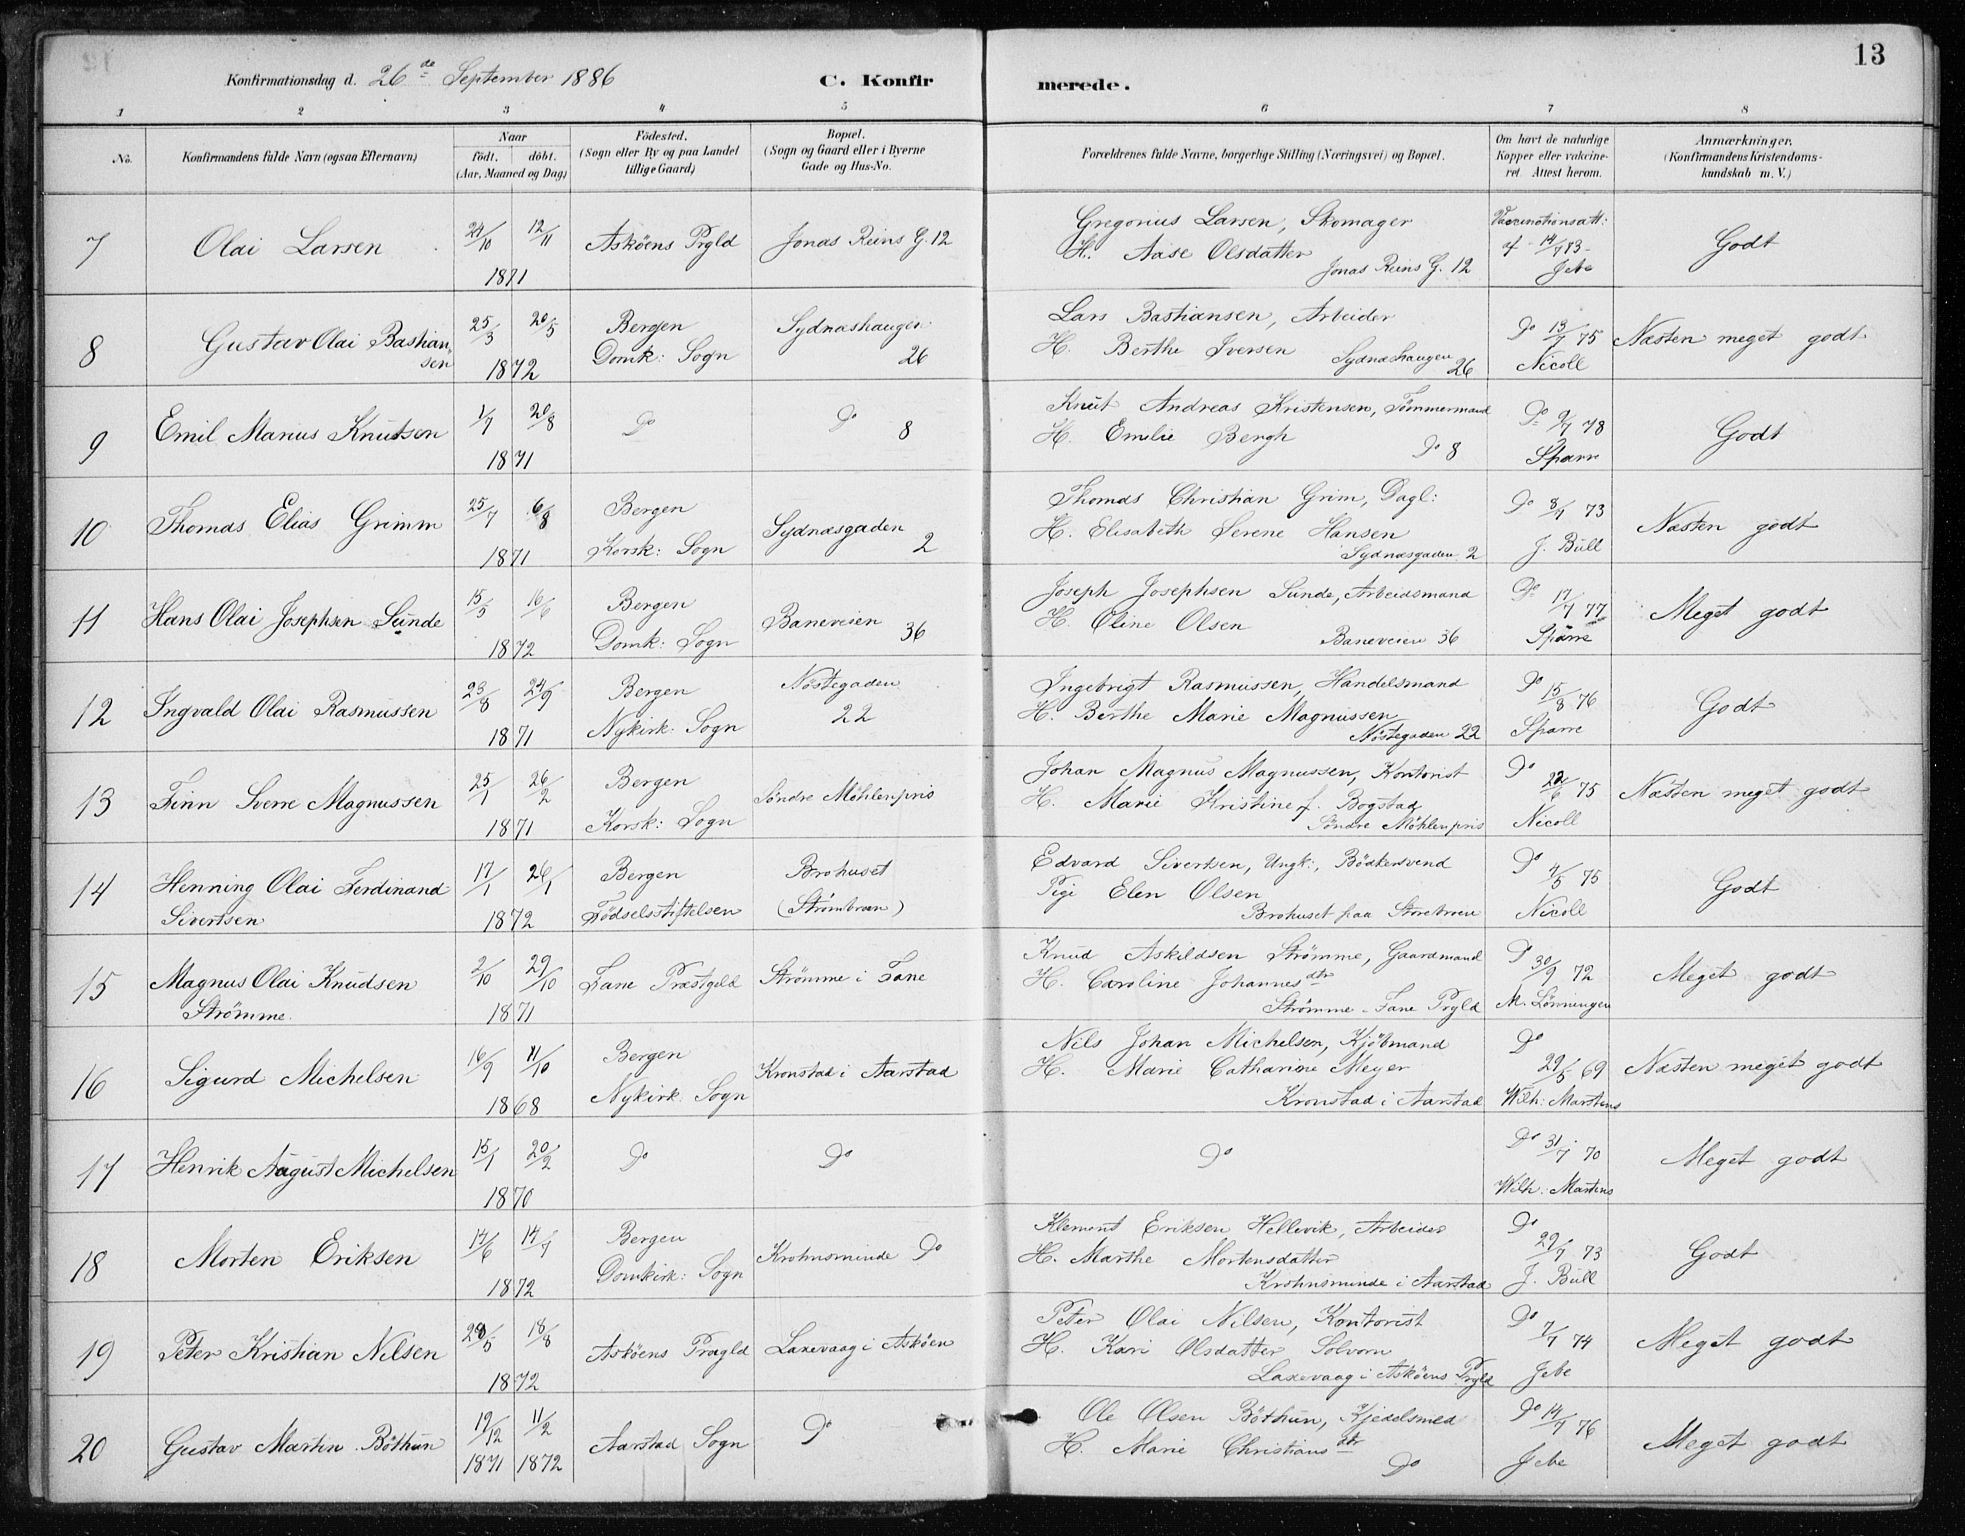 13
Konfirmationsdag d. 26de September 1886
C. Konfirmerede.
1 2 3 4 5 6 7 8
No. Konfirmandens fulde Navn (ogsaa Efternavn) Naar født. døbt. (Aar, Maaned og Dag) Fødested. (Sogn eller By og paa Landet tillige Gaard) Bopæl. (Sogn og Gaard eller i Byerne Gade og Hus-No. Forældrenes fulde Navne, borgerlige Stilling (Næringsvei) og Bopæl. Om havt de naturlige Kopper eller vakcineret. Attest herom. Anmærkninger. (Konfirmandens Kristendomskundskab m. V.)
7 Olai Larsen 24/10 12/11 1871 Askøens Prgld Jonas Reins G. 12 Gregorius Larsen, Skomager
H. Aase Olsdatter
Jonas Reins G. 12 Vaccinationsatt: af 14/7 83 Jebe Godt
8 Gustav Olai Bastiansen 25/3 20/5 1872 Bergen Domk: Sogn Sydnæshaugen 26 Lars Bastiansen, Arbeider
H. Berthe Iversen
Sydnæshaugen 26 Do 13/7 75 Nicoll Næsten meget godt
9 Emil Marius Knutsen 1/7 20/8 1871 Do Do 8 Knut Andreas Kristensen, Tømmermand
H. Emilie Bergh
Do 8 Do 9/7 78 Sparre Godt
10 Thomas Elias Grimm 25/7 6/8 1871 Bergen Korsk: Sogn Sydnæsgaden 2 Thomas Christian Grim, Dagl:
H. Elisabeth Serene Hansen
Sydnæsgaden 2 Do 8/7 73 J. Bull Næsten godt
11 Hans Olai Josephsen Sunde 15/5 16/6 1872 Bergen Domk: Sogn Baneveien 36 Joseph Josephsen Sunde, Arbeidsmand
H. Oline Olsen
Baneveien 36 Do 17/7 77 Sparre Meget godt
12 Ingvald Olai Rasmussen 23/8 24/9 1871 Bergen Nykirk. Sogn Nøstegaden 22 Ingebrigt Rasmussen, Handelsmand
H. Berthe Marie Magnussen
Nøstegaden 22 Do 15/8 76 Sparre Godt
13 Finn Sverre Magnussen 25/1 26/2 1871 Bergen Korsk: Sogn Søndre Møhlenpris Johan Magnus Magnussen, Kontorist
H. Marie Kristine f. Bogstad
Søndre Møhlenpris Do 22/6 75 Nicoll Næsten meget godt
14 Henning Olai Ferdinand Sivertsen 17/1 26/1 1872 Bergen Fødselsstiftelsen Brohuset (Strømbroen) Edvard Sivertsen, Ungk:, Bødkersvend
Pige Elen Olsen
Brohuset paa Storebroen Do 4/5 75 Nicoll Godt
15 Magnus Olai Knudsen Strømme 2/10 29/10 1871 Fane Præstgeld Strømme i Fane Knud Askildsen Strømme, Gaardmand
H. Caroline Johannesdtr
Strømme - Fane Prgld Do 30/9 72 M. Lønningen Meget godt
16 Sigurd Michelsen 16/9 11/10 1868 Bergen Nykirk. Sogn Kronstad i Aarstad Nils Johan Michelsen, Kjøbmand
H. Marie Catharine Meyer
Kronstad i Aarstad Do 29/5 69 Wilh: Martens Næsten meget godt
17 Henrik August Michelsen 15/1 20/2 1870 Do Do Do Do 31/7 70 Wilh. Martens Meget godt
18 Morten Eriksen 14/6 14/7 1872 Bergen Domkirk: Sogn Krohnsminde Do Klement Eriksen Hellevik, Arbeider
H. Marthe Mortensdatter
Krohnsminde i Aarstad Do 29/7 73 J. Bull Godt
19 Peter Kristian Nilsen 28/5 18/8 1872 Askøens Prægld Laxevaag i Askøen Peter Olai Nilsen, Kontorist
H. Kari Olsdatter Solvorn
Laxevaag i Askøens Prgld Do 7/7 74 Jebe Meget godt
20 Gustav Martin Bøthun 19/12 11/2 1871 1872 Aarstad Sogn Do Ole Olsen Bøthun, Kjedelsmed
H. Marie Christiansdtr
Do Do 14/7 76 Jebe Meget godt